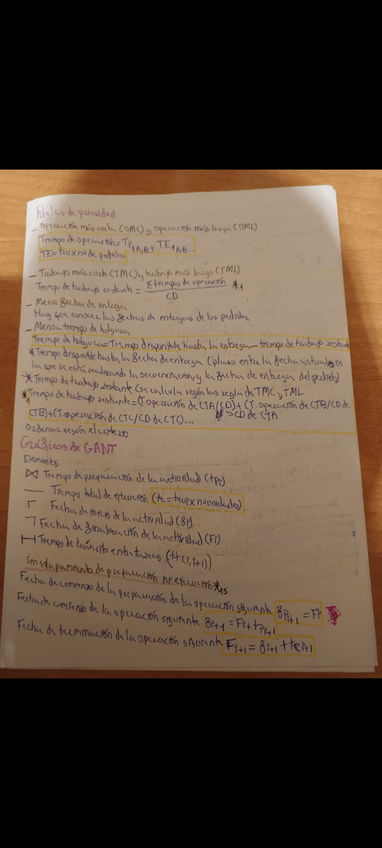 Reglas de prioridad
- Operación más corta (OMC) y operación más larga (OML)
Tiempo de operación = TP 1A,B, TE 1A,B
TE = teu x nº de pedidos
- Trabajo más corto (TMC) y trabajo más largo (TML)
Tiempo de trabajo restante = Σ tiempos de operación *1
CD
- Menor fecha de entrega
Hay que conocer las fechas de entregas de los pedidos
- Menor tiempo de holgura
Tiempo de holgura = Tiempo disponible hasta la entrega - tiempo de trabajo restante
* Tiempo disponible hasta la fecha de entrega (plazo entre la fecha actual en
la que se está realizando la secuenciación y la fecha de entrega del pedido)
* Tiempo de trabajo restante (se calcula según las reglas de TMC y TML
* Tiempo de trabajo restante = (T operación de CTA/CD) + (T. operación de CTB/CD de
CTB) + (T operación de CTC/CD de CTC)... > CD de CTA
Ordenar según el criterio
Gráficos de GANT
Elementos
⋈ Tiempo de preparación de la actividad (tPi)
— Tiempo total de ejecución (te = teu x nº unidades)
Γ Fecha de inicio de la actividad (gi)
ꓶ Fecha de finalización de la actividad (Fi)
H Tiempo de tránsito entre tareas (tt(i,i+1)
Sin solapamiento de preparación ni ejecución *15
Fecha de comienzo de la preparación de la operación siguiente gPi+1 = Fi
Fecha de comienzo de la operación siguiente gi+1 = Fi + tPi+1
Fecha de terminación de la operación siguiente Fi+1 = gi+1 + tei+1